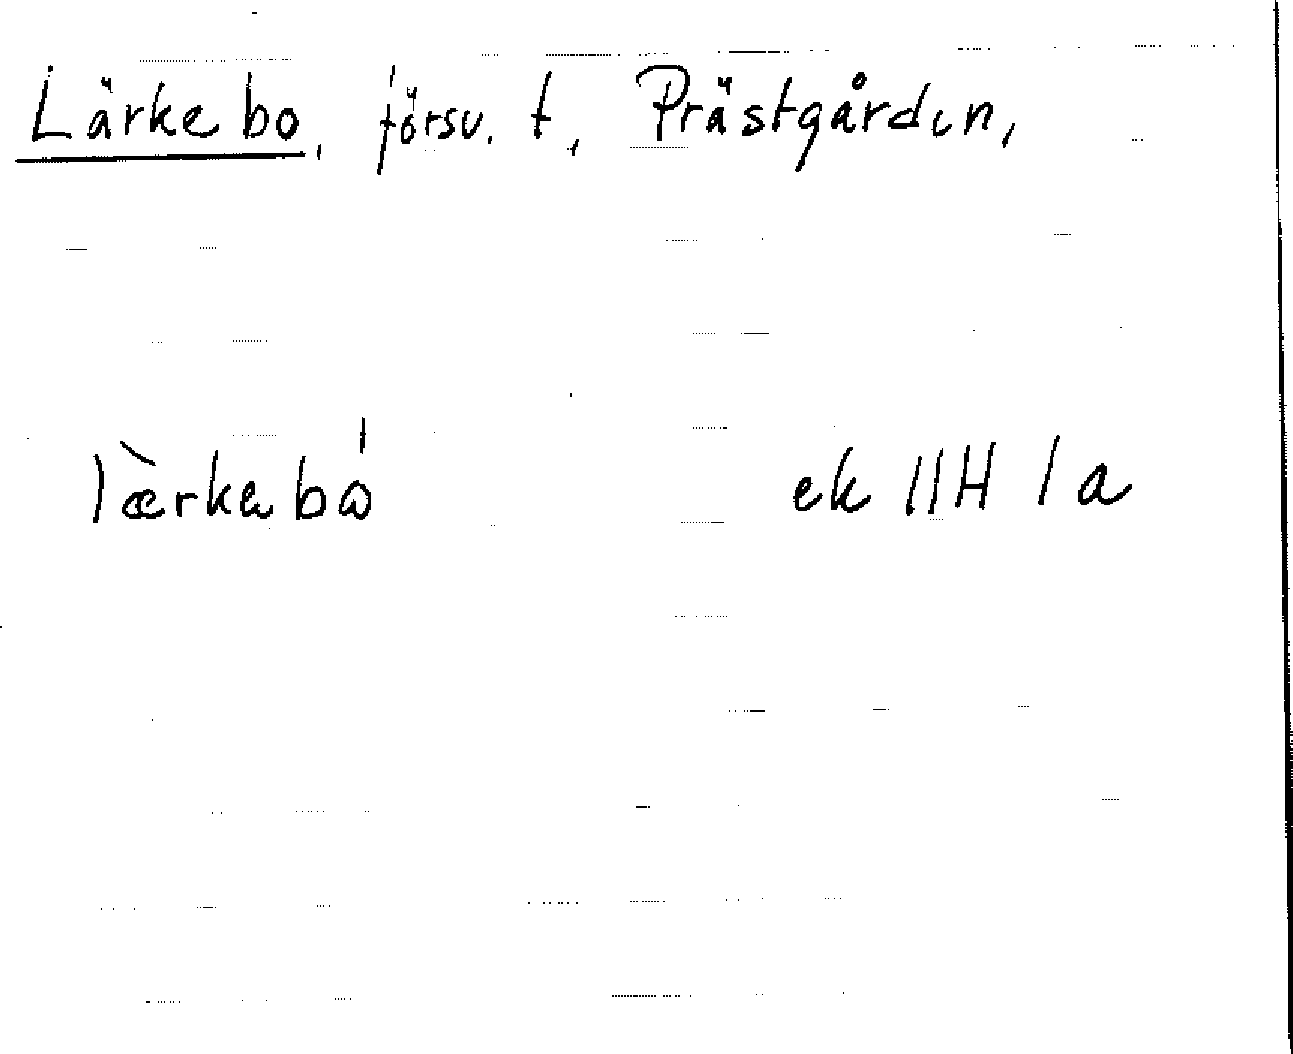 Lärkebo, försv. t, Prästgården,
læ̀rkabó ek 11H 1a